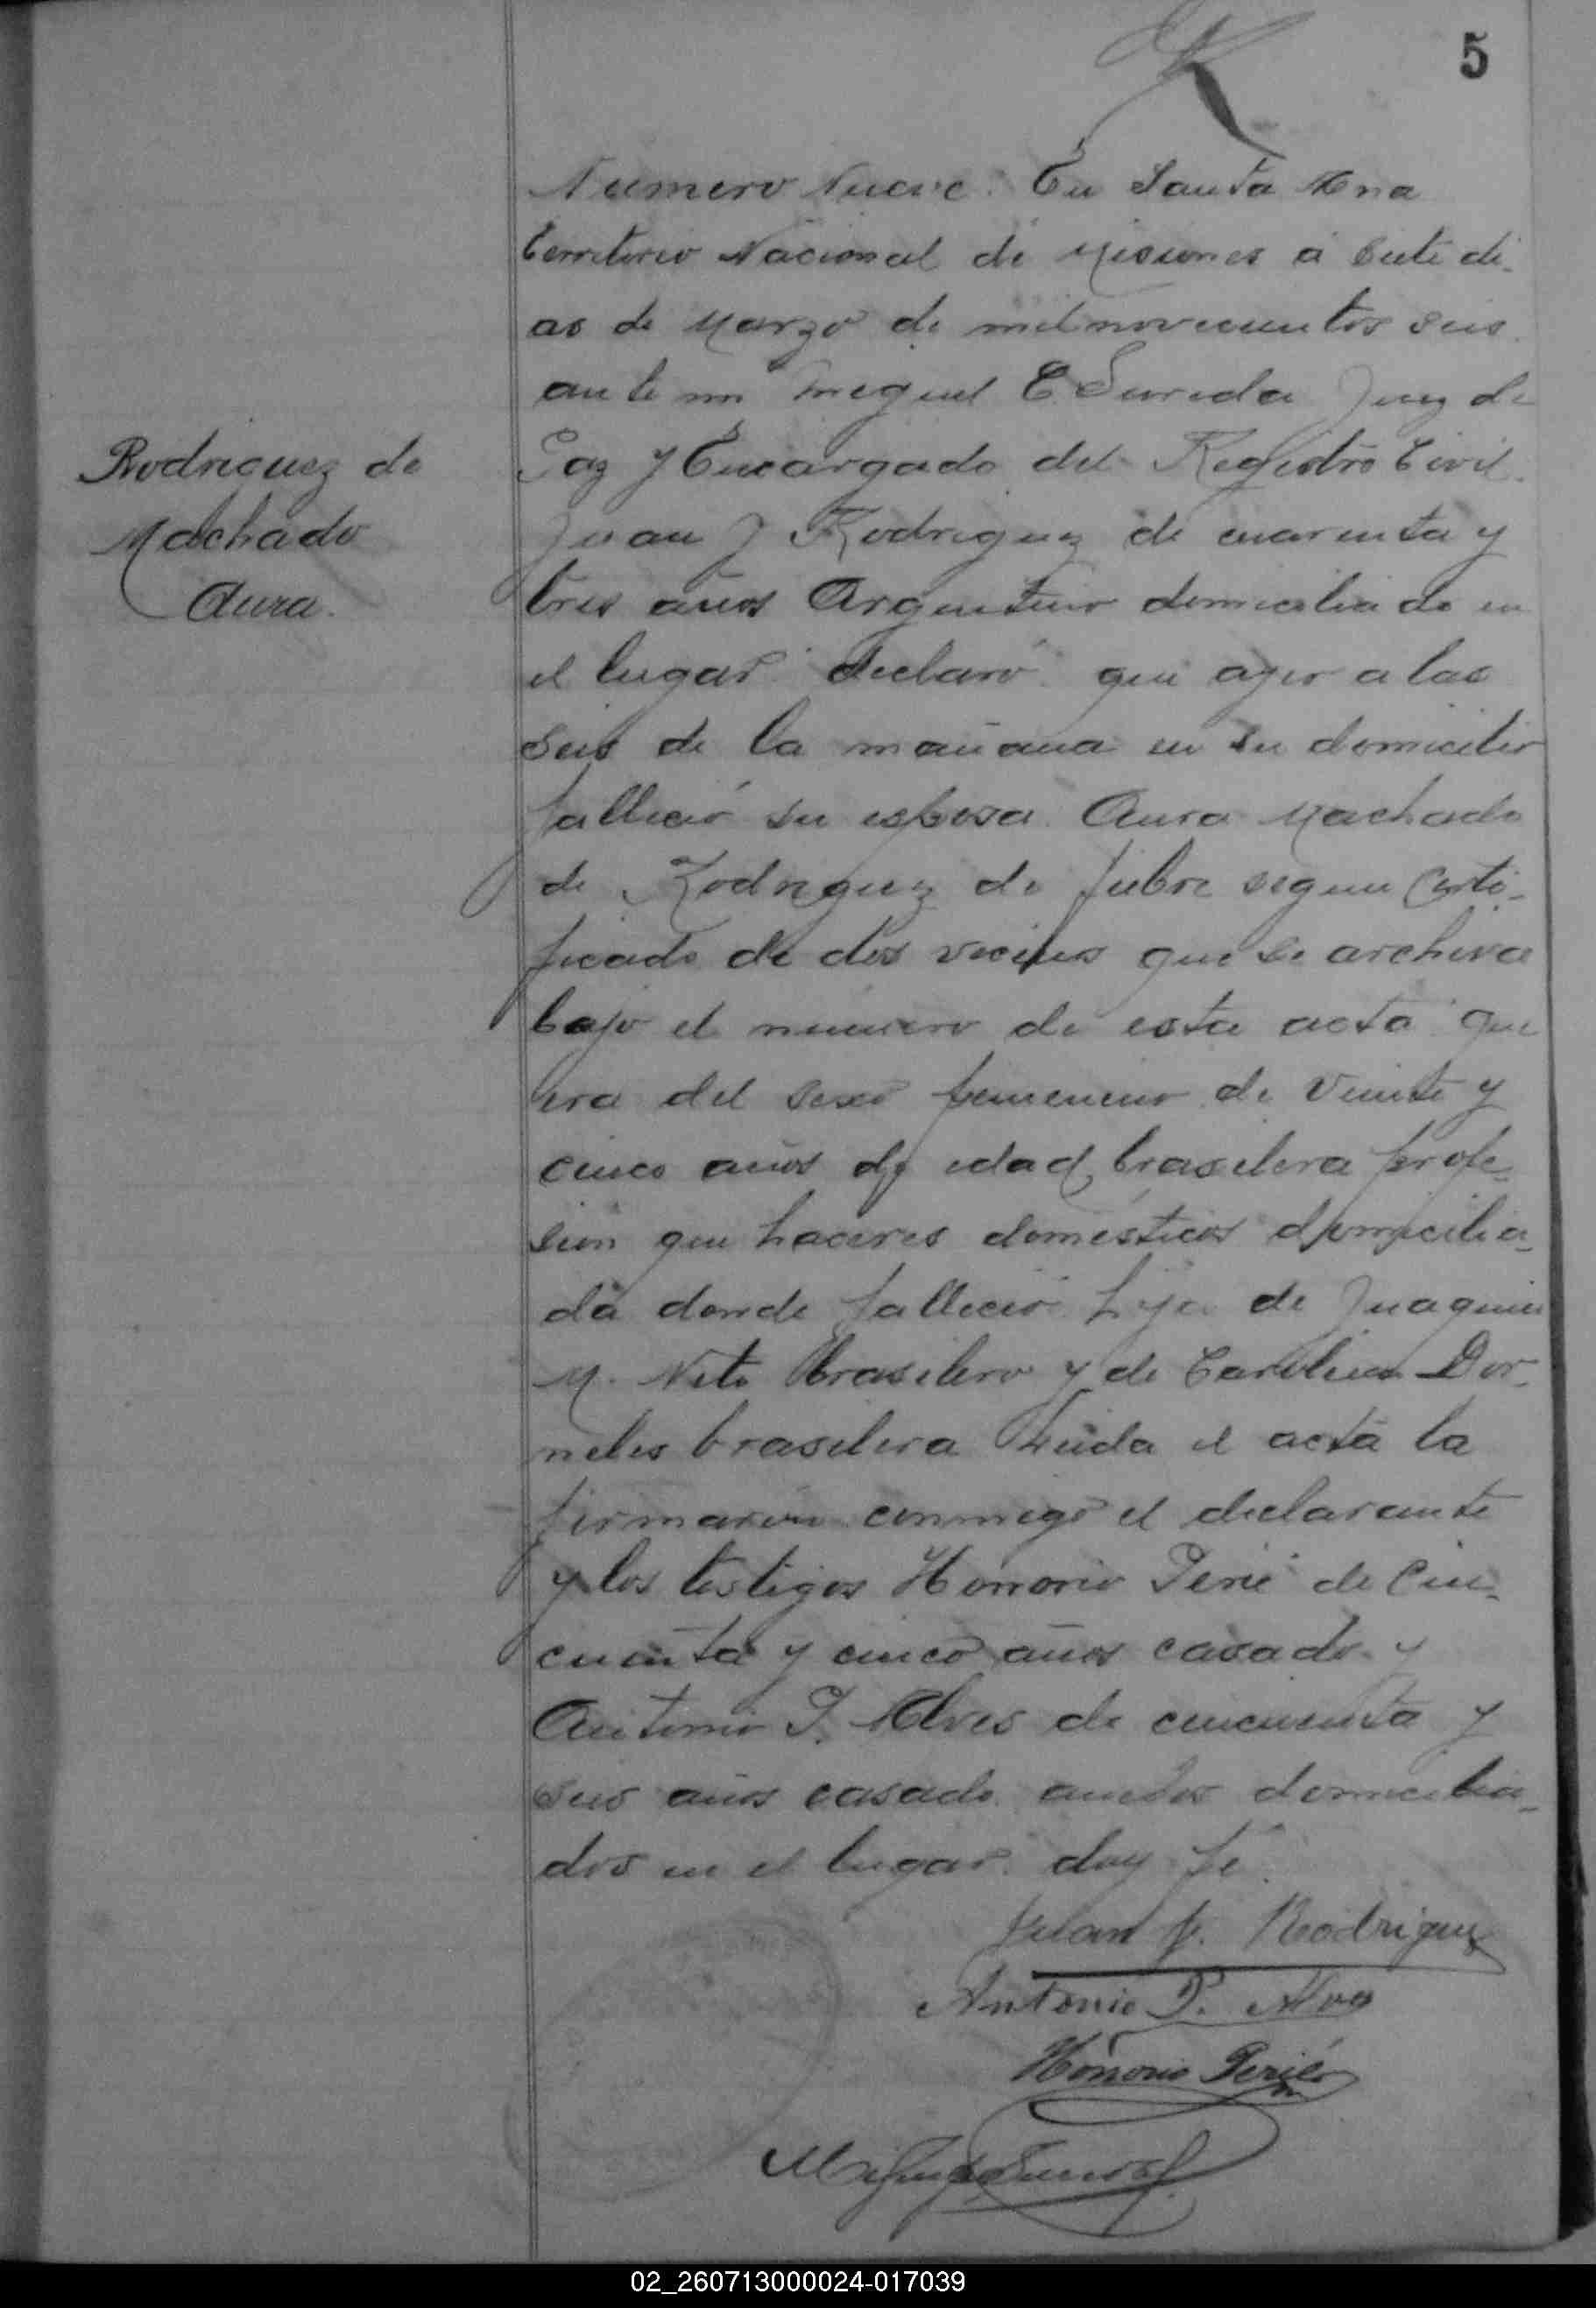 5
Numero Nueve. En Santa Ana
territorio Nacional de Misiones á siete di-
as de Marzo de mil novecientos seis
ante mi Miguel E. Sureda Juez de
Paz y Encargado del Registro Civil.
Rodriguez de
Machado
Aura.
Juan J Rodriguez de cuarenta y
tres años Argentino domiciliado en
el lugar declaró que ayer a las
seis de la mañana en su domicilio
falleció su esposa Aura Machado
de Rodriguez de fiebre segun certi-
ficado de dos vecinos que se archiva
bajo el número de esta acta que
era del sexo femenino de veinte y
cinco años de edad brasilera profe-
sion que haceres domésticos domicilia-
da donde falleció hija de Juaquin
M. Neto brasilero y de Carolina Dor-
neles brasilera Leida el acta la
firmaron conmigo el declarante
y los testigos Honorio Perié de cin-
cuenta y cinco años casado y
Antonio P. Alves de cincuenta y
seis años casado ambos domicilia-
dos en el lugar doy fé.
Juan J. Rodriguez
Antonio P. Alves
Honorio Perié
Miguel E Sureda
02_260713000024-017039